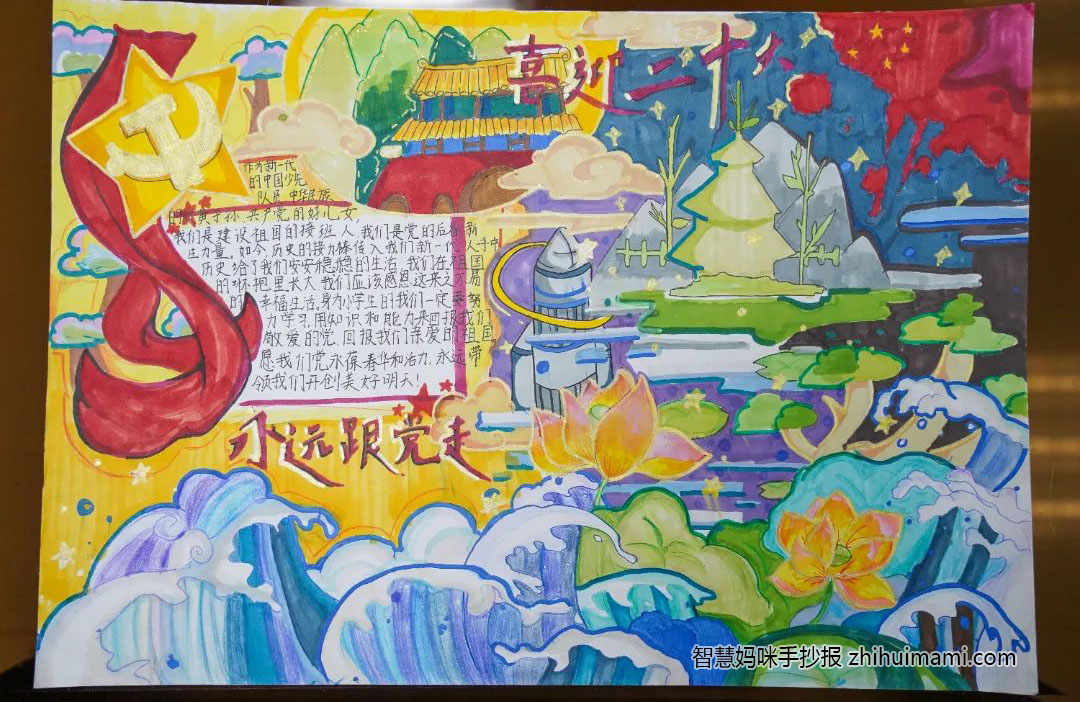 喜迎二十大
作为新一代
的中国少先
队员 中华民族
的炎黄子孙,共产党的好儿女
我们是建设祖国的接班人,我们是党的后备新
生力量。如今,历史的接力棒传入我们新一代人手中
历史给了我们安安稳稳的生活,我们在祖国
的怀抱里长大,我们应该感恩这来之不易
的幸福生活,身为小学生的我们一定要努
力学习,用知识和能力来回报我们
敬爱的党,回报我们亲爱的祖国,
愿我们党永葆春华和活力,永远带
领我们开创美好明天!
永远跟党走
智慧妈咪手抄报 zhihuimami.com